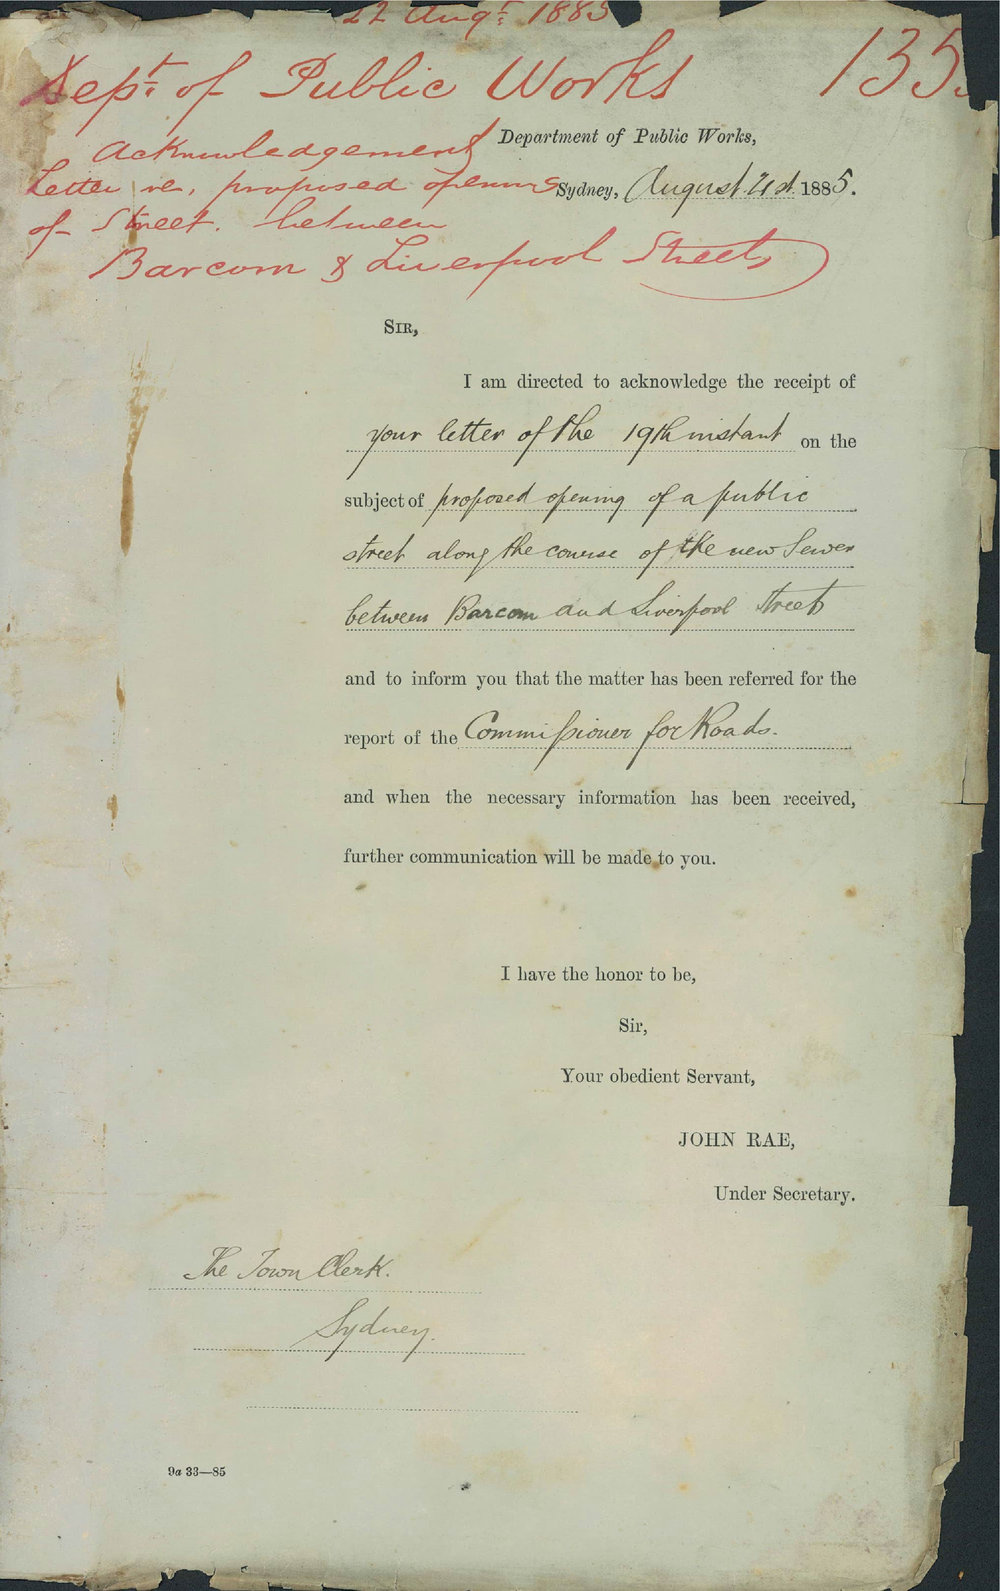 22 Augt. 1885
Dept. of Public Works
135
Acknowledgement
Letter re, proposed opening
of Street. between
Barcom & Liverpool Streets
Department of Public Works,
Sydney, August 21st 1885.
SIR,
I am directed to acknowledge the receipt of
your letter of the 19th instant on the
subject of proposed opening of a public
street along the course of the new Sewer
between Barcom and Liverpool Streets
and to inform you that the matter has been referred for the
report of the Commissioner for Roads.
and when the necessary information has been received,
further communication will be made to you.
I have the honor to be,
Sir,
Your obedient Servant,
JOHN RAE,
Under Secretary.
The Town Clerk.
Sydney.
9a 33—85